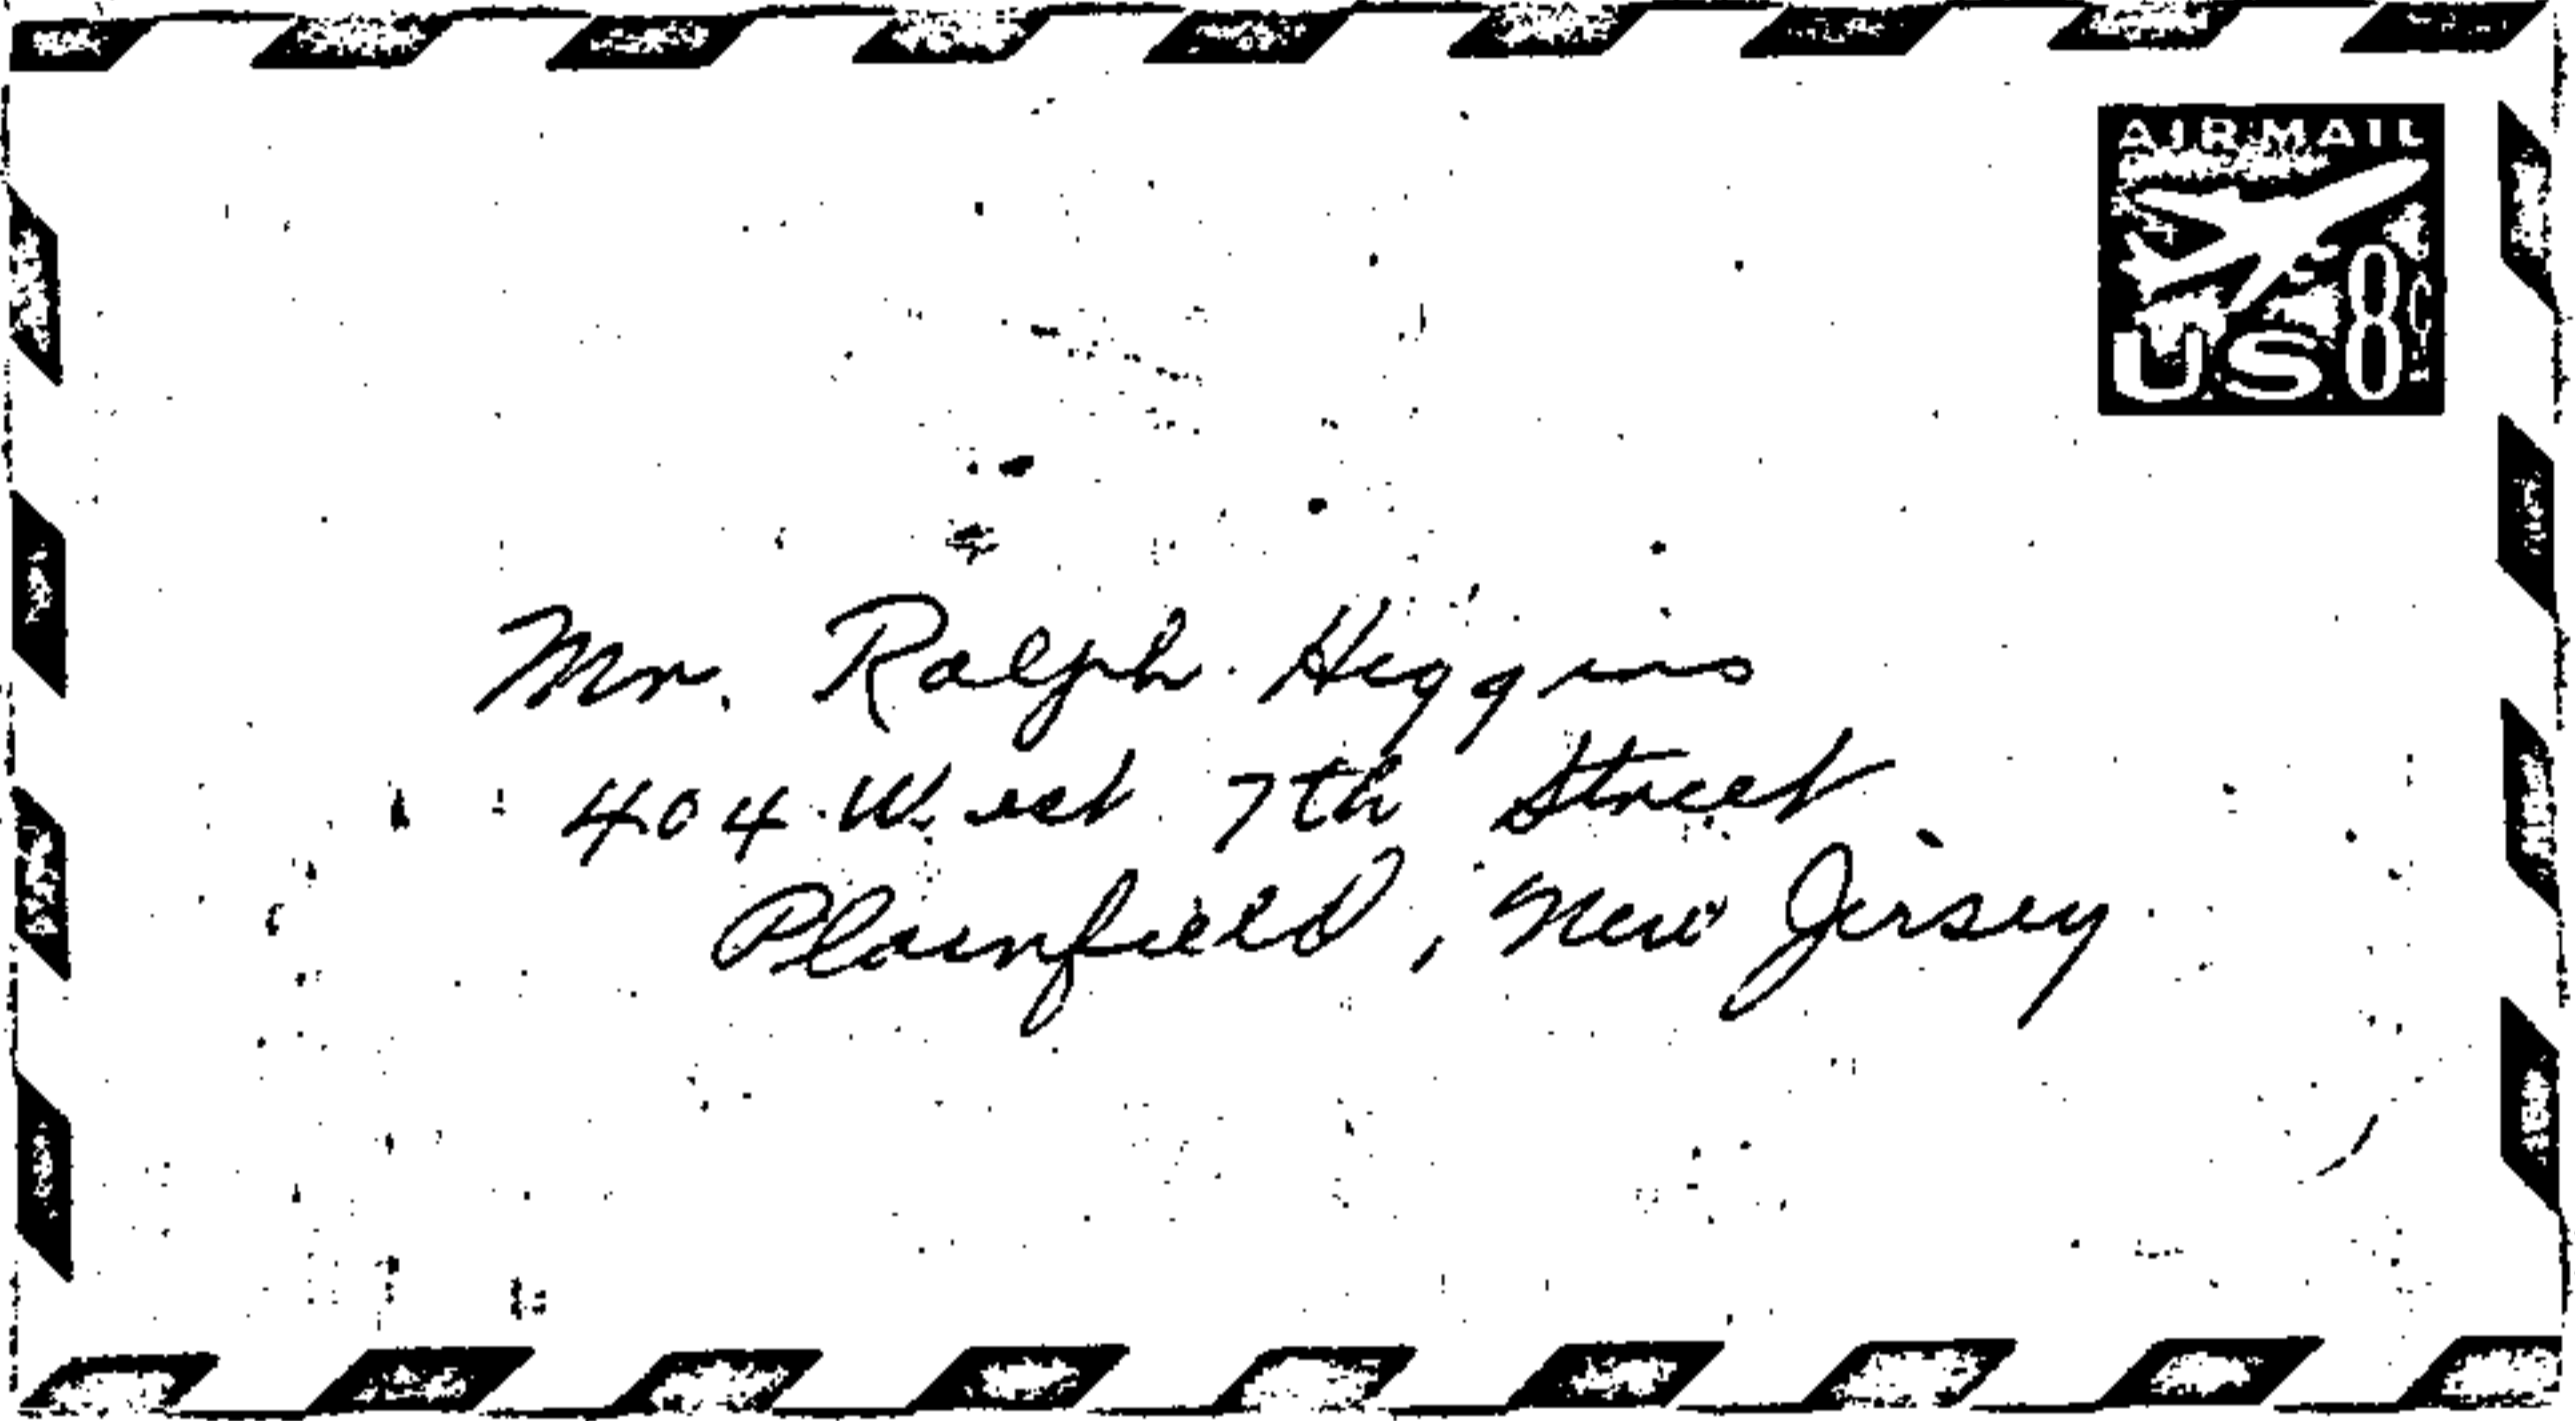 AIR MAIL
U.S. 8
Mr. Ralph Higgins
404 West 7th Street
Plainfield, New Jersey